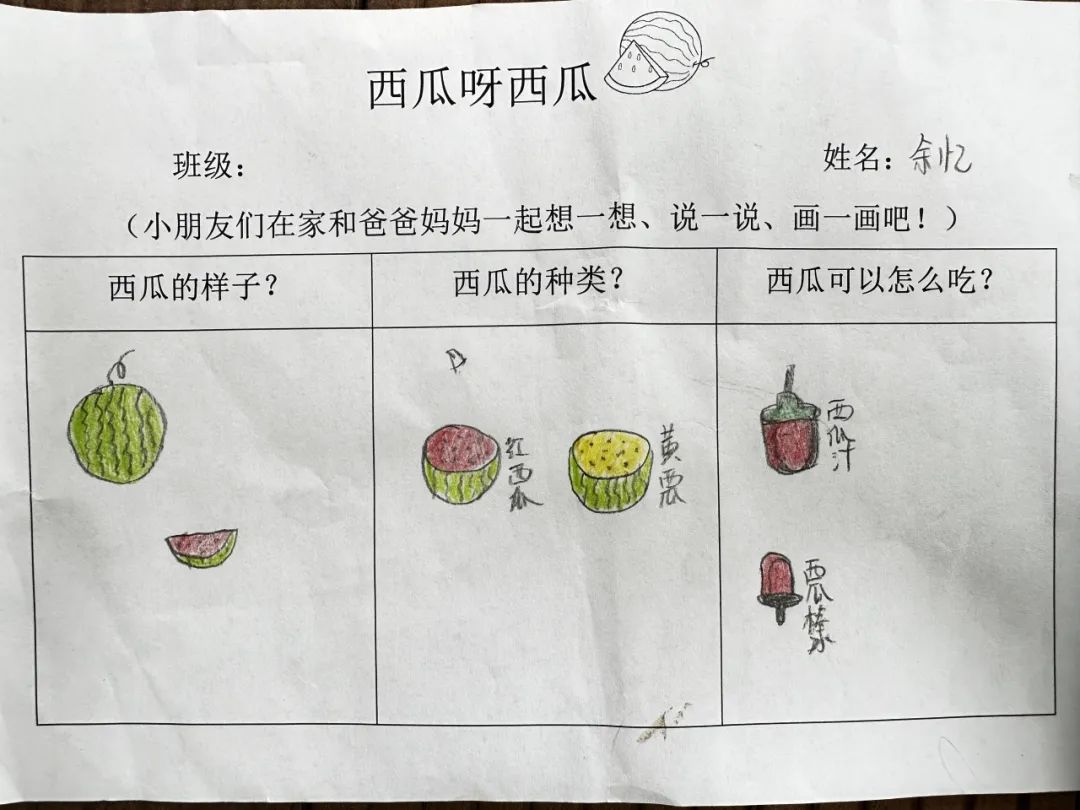 西瓜呀西瓜
班级：
姓名：余忆
（小朋友们在家和爸爸妈妈一起想一想、说一说、画一画吧！）
西瓜的样子？
西瓜的种类？
西瓜可以怎么吃？
红西瓜
黄西瓜
西瓜汁
西瓜棒冰